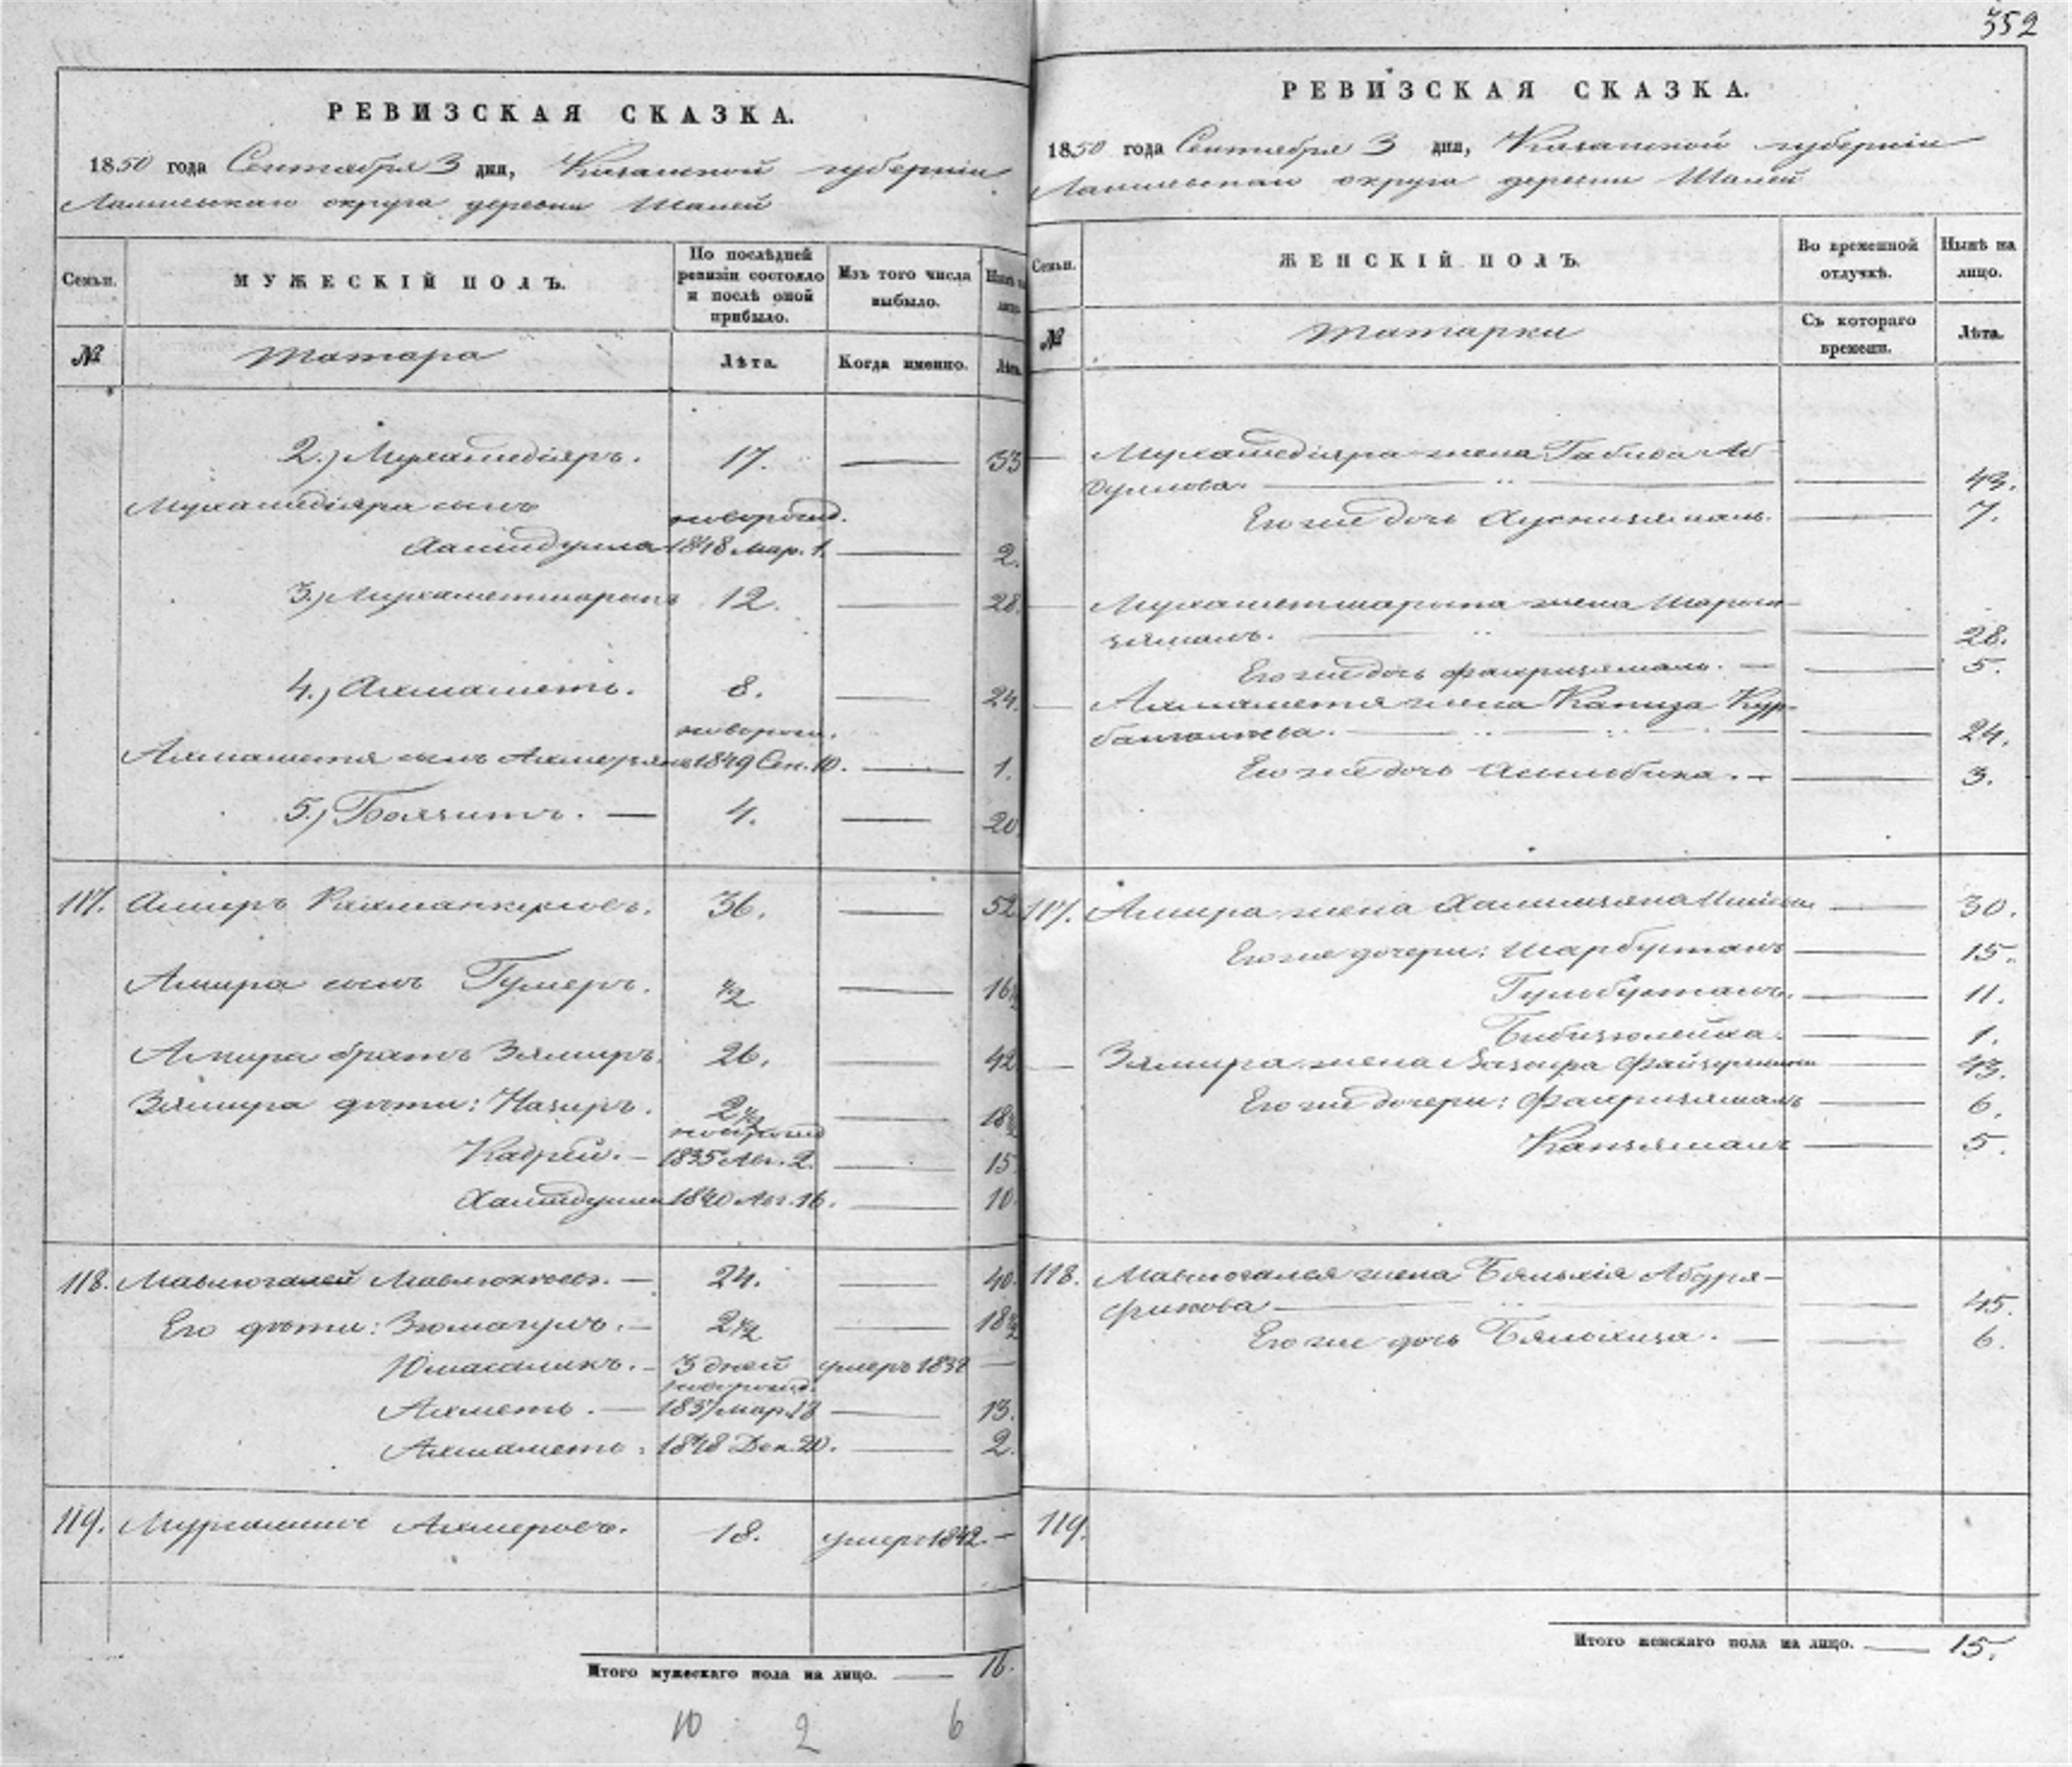 352
РЕВИЗСКАЯ СКАЗКА.
1850 года Сентября 3 дня, Казанской губернiи
Лаишевскаго округа деревни Шалей
Семьи. МУЖЕСКIЙ ПОЛЪ. По послѣдней ревизiи состояло и послѣ оной прибыло. Изъ того числа выбыло. Нынѣ на лицо.
№ Татара Лѣта. Когда именно. Лѣта.
2.) Мухамедiяръ. 17. — 33
Мухамедiяра сынъ новорожд.
Хамидулла 1848 Мар. 1. — 2.
3.) Мухаметшарыпъ 12. — 28.
4.) Ахмаметъ. 8. — 24.
новорож.
Ахмаметя сынъ 1849 Сен. 10. — 1.
5.) Баязитъ. — 4. — 20
117. Амиръ Рахманкуловъ. 36. — 52
Амира сынъ Гумеръ. 1/2 — 16 1/2
Амира братъ Зямиръ. 26. — 42
Зямира дѣти: Назиръ. 2 1/2 — 18 1/2
новорожд
Кадрей. — 1835 Авг. 2. — 15
Хамидулла 1840 Авг. 16. — 10
118. Мавлюгалей Мавлюкѣевъ. — 24. — 40.
Его дѣти: Зюмагулъ. — 2 1/2 — 18 1/2
3 дней умеръ 1834 —
новорожд.
Ахметъ. — 1837 Мар. 18 — 13.
Ахмаметъ. 1848 Дек. 20. — 2.
119. Ахмеровъ. 18. умеръ 1842. —
Итого мужескаго пола на лицо. — 16.
10 2 6
РЕВИЗСКАЯ СКАЗКА.
1850 года Сентября 3 дня, Казанской губернiи
Лаишевскаго округа деревни Шалей
Семьи. ЖЕНСКIЙ ПОЛЪ. Во временной отлучкѣ. Нынѣ на лицо.
№ Татарки Съ котораго времени. Лѣта.
— Мухамедiяра жена Габида Аб-
дулова. — — 43.
Его же дочь Хуснизямаль. — 7.
— Мухаметшарыпа жена Шарыи-
зямалъ. — — 28.
Его же дочь Фахризямаль. — — 5.
— Ахмаметя жена Каниза Кур-
бангалеева. — — 24.
Его же дочь — — 3.
117. Амира жена — 30.
Его же дочери: Шарбустанъ — 15.
Гульбустанъ. — 11.
Бибизюлейха. — 1.
— Зямира жена — 43.
Его же дочери: Фахризямалъ — 6.
Канзямалъ — 5.
118. Мавлюгалея жена Абдря-
фикова — — 45.
Его же дочь — — 6.
119.
Итого женскаго пола на лицо. — 15.